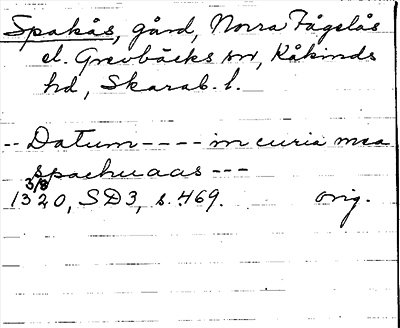 Spakås, gård, Norra Fågelås
el. Grevbäcks sn, Kåkinds
hd, Skarab. l.
-- Datum ---- in curia mea
spaehuaas ---
3/8
1320, SD3, s. 469. orig.